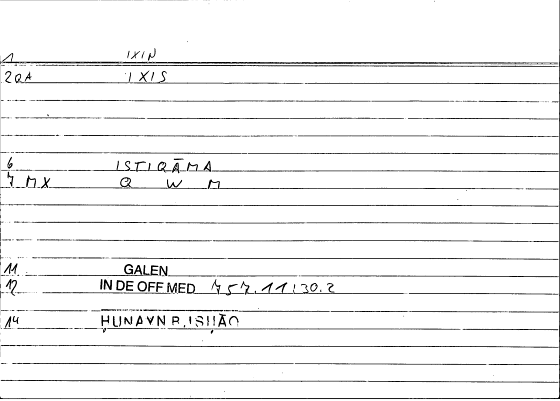 IXIN
1
2 QA IXIS
6 ISTIQĀMA
7 MX Q W M
11 GALEN
12 IN DE OFF MED 757.11:30.2
14 ḤUNAYN B. ISḤĀQ